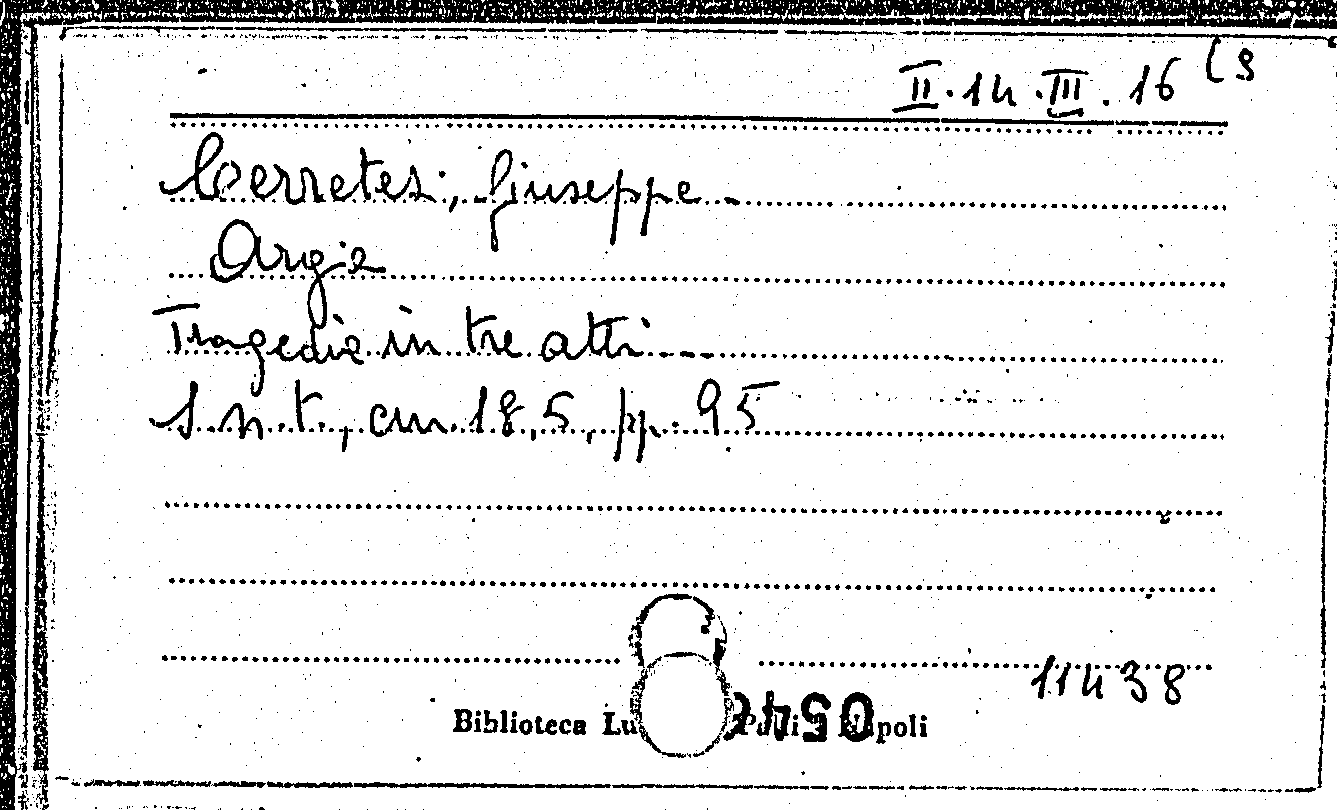 II.14.III.16 (3
Cerretesi, Giuseppe
Argia
Tragedia in tre atti
S.n.t., cm. 18,5, pp. 95
11438
Biblioteca Napoli